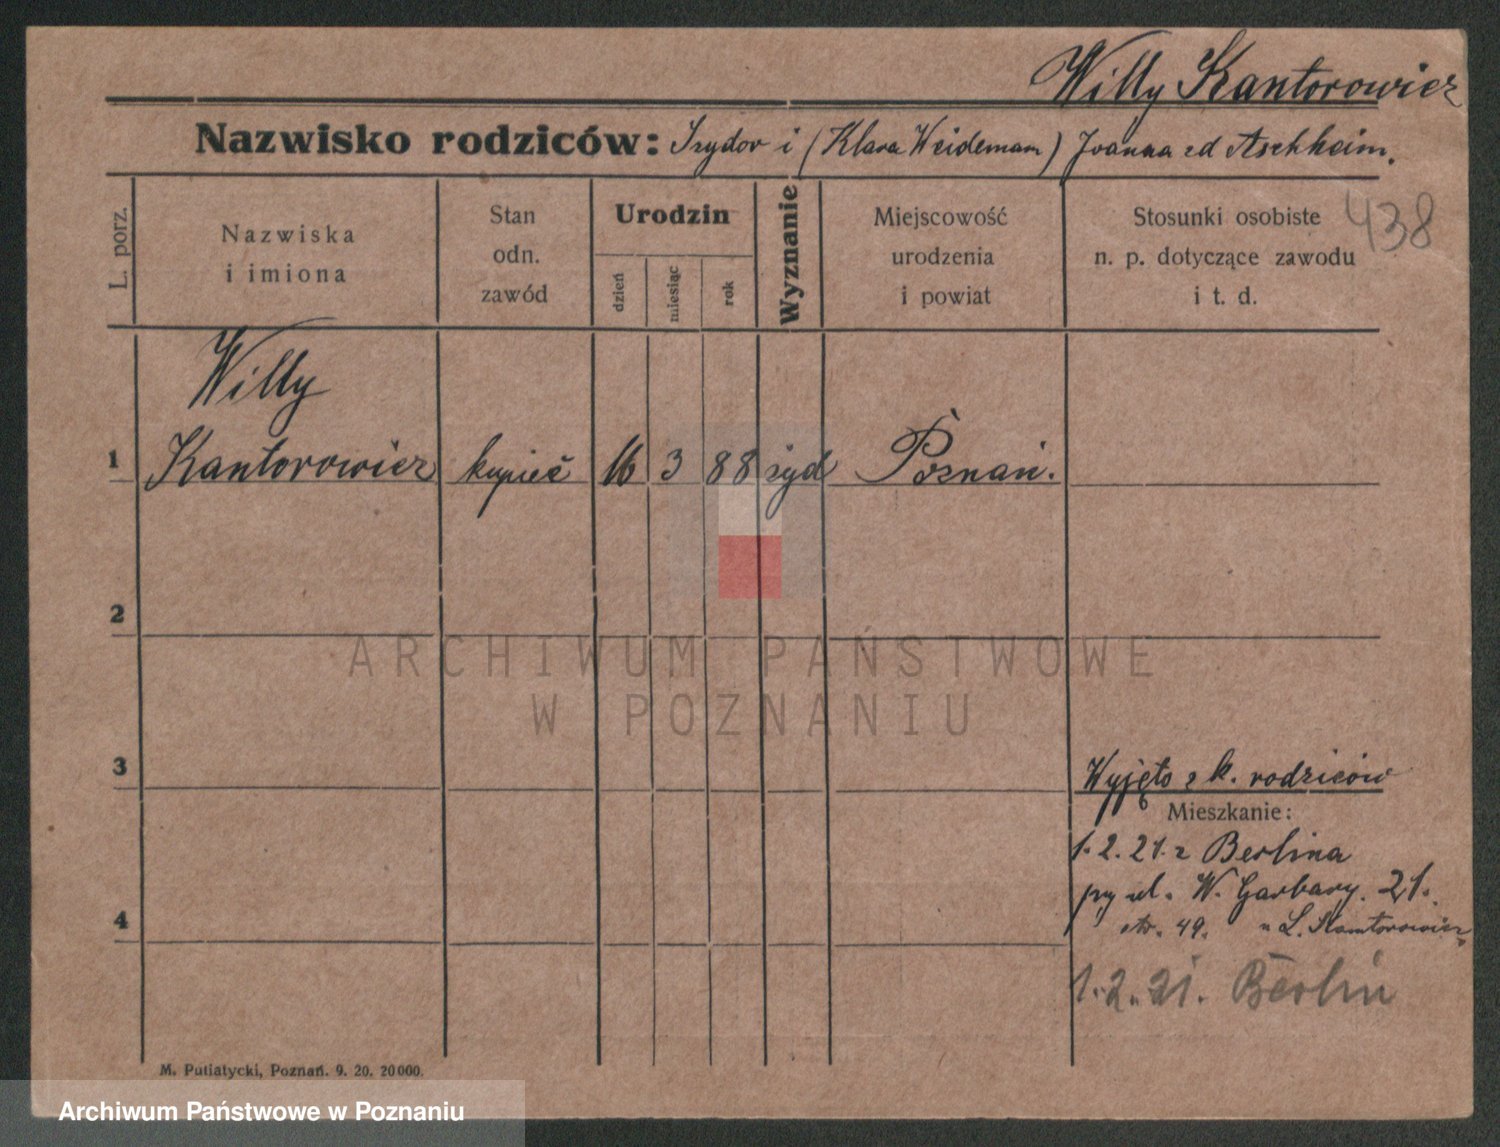 Willy Kantorowicz
Nazwisko rodziców: Izydor i (Klara Weideman) Joanna zd Aschheim.
438
L. porz.
Nazwiska
i imiona
Stan
odn.
zawód
Urodzin
dzień
miesiąc
rok
Wyznanie
Miejscowość
urodzenia
i powiat
Stosunki osobiste
n. p. dotyczące zawodu
i t. d.
Willy
1 Kantorowicz kupiec 16 3 88 żyd Poznań.
2
3
Wyjęto z k. rodziców
Mieszkanie:
1.2.21. z Berlina
ul. W. Garbary. 21.
4
str. 49. u L. Kantorowicz
1.2.21. Berlin
M. Putiatycki, Poznań. 9. 20. 20 000.
ARCHIWUM PAŃSTWOWE
W POZNANIU
Archiwum Państwowe w Poznaniu